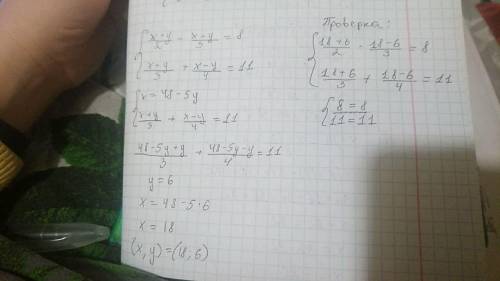 { x+y/2 - x+y/3 = 8
{ x+y/3 + x-y/4 = 11
{ x = 48-5y
{ x+y/3 + x-y/4 = 11
48-5y+y/3 + 48-5y-y/4 = 11
y = 6
x = 48-5·6
x = 18
(x, y) = (18; 6)
Проверка:
{ 18+6/2 - 18-6/3 = 8
{ 18+6/3 + 18-6/4 = 11
{ 8 = 8
11 = 11